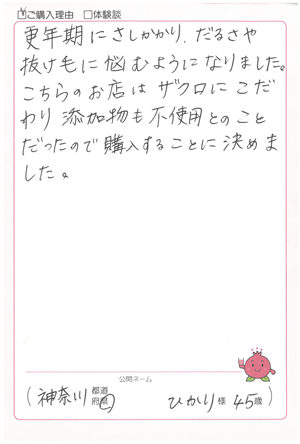 ☑ご購入理由 □体験談
更年期にさしかかり、だるさや
抜け毛に悩むようになりました。
こちらのお店はザクロにこだ
わり添加物も不使用とのこと
だったので購入することに決めま
した。
公開ネーム
(神奈川 都道府県 ひかり様 45歳)